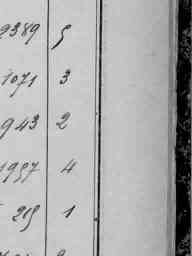 2389 5
1071 3
943 2
1957 4
219 1